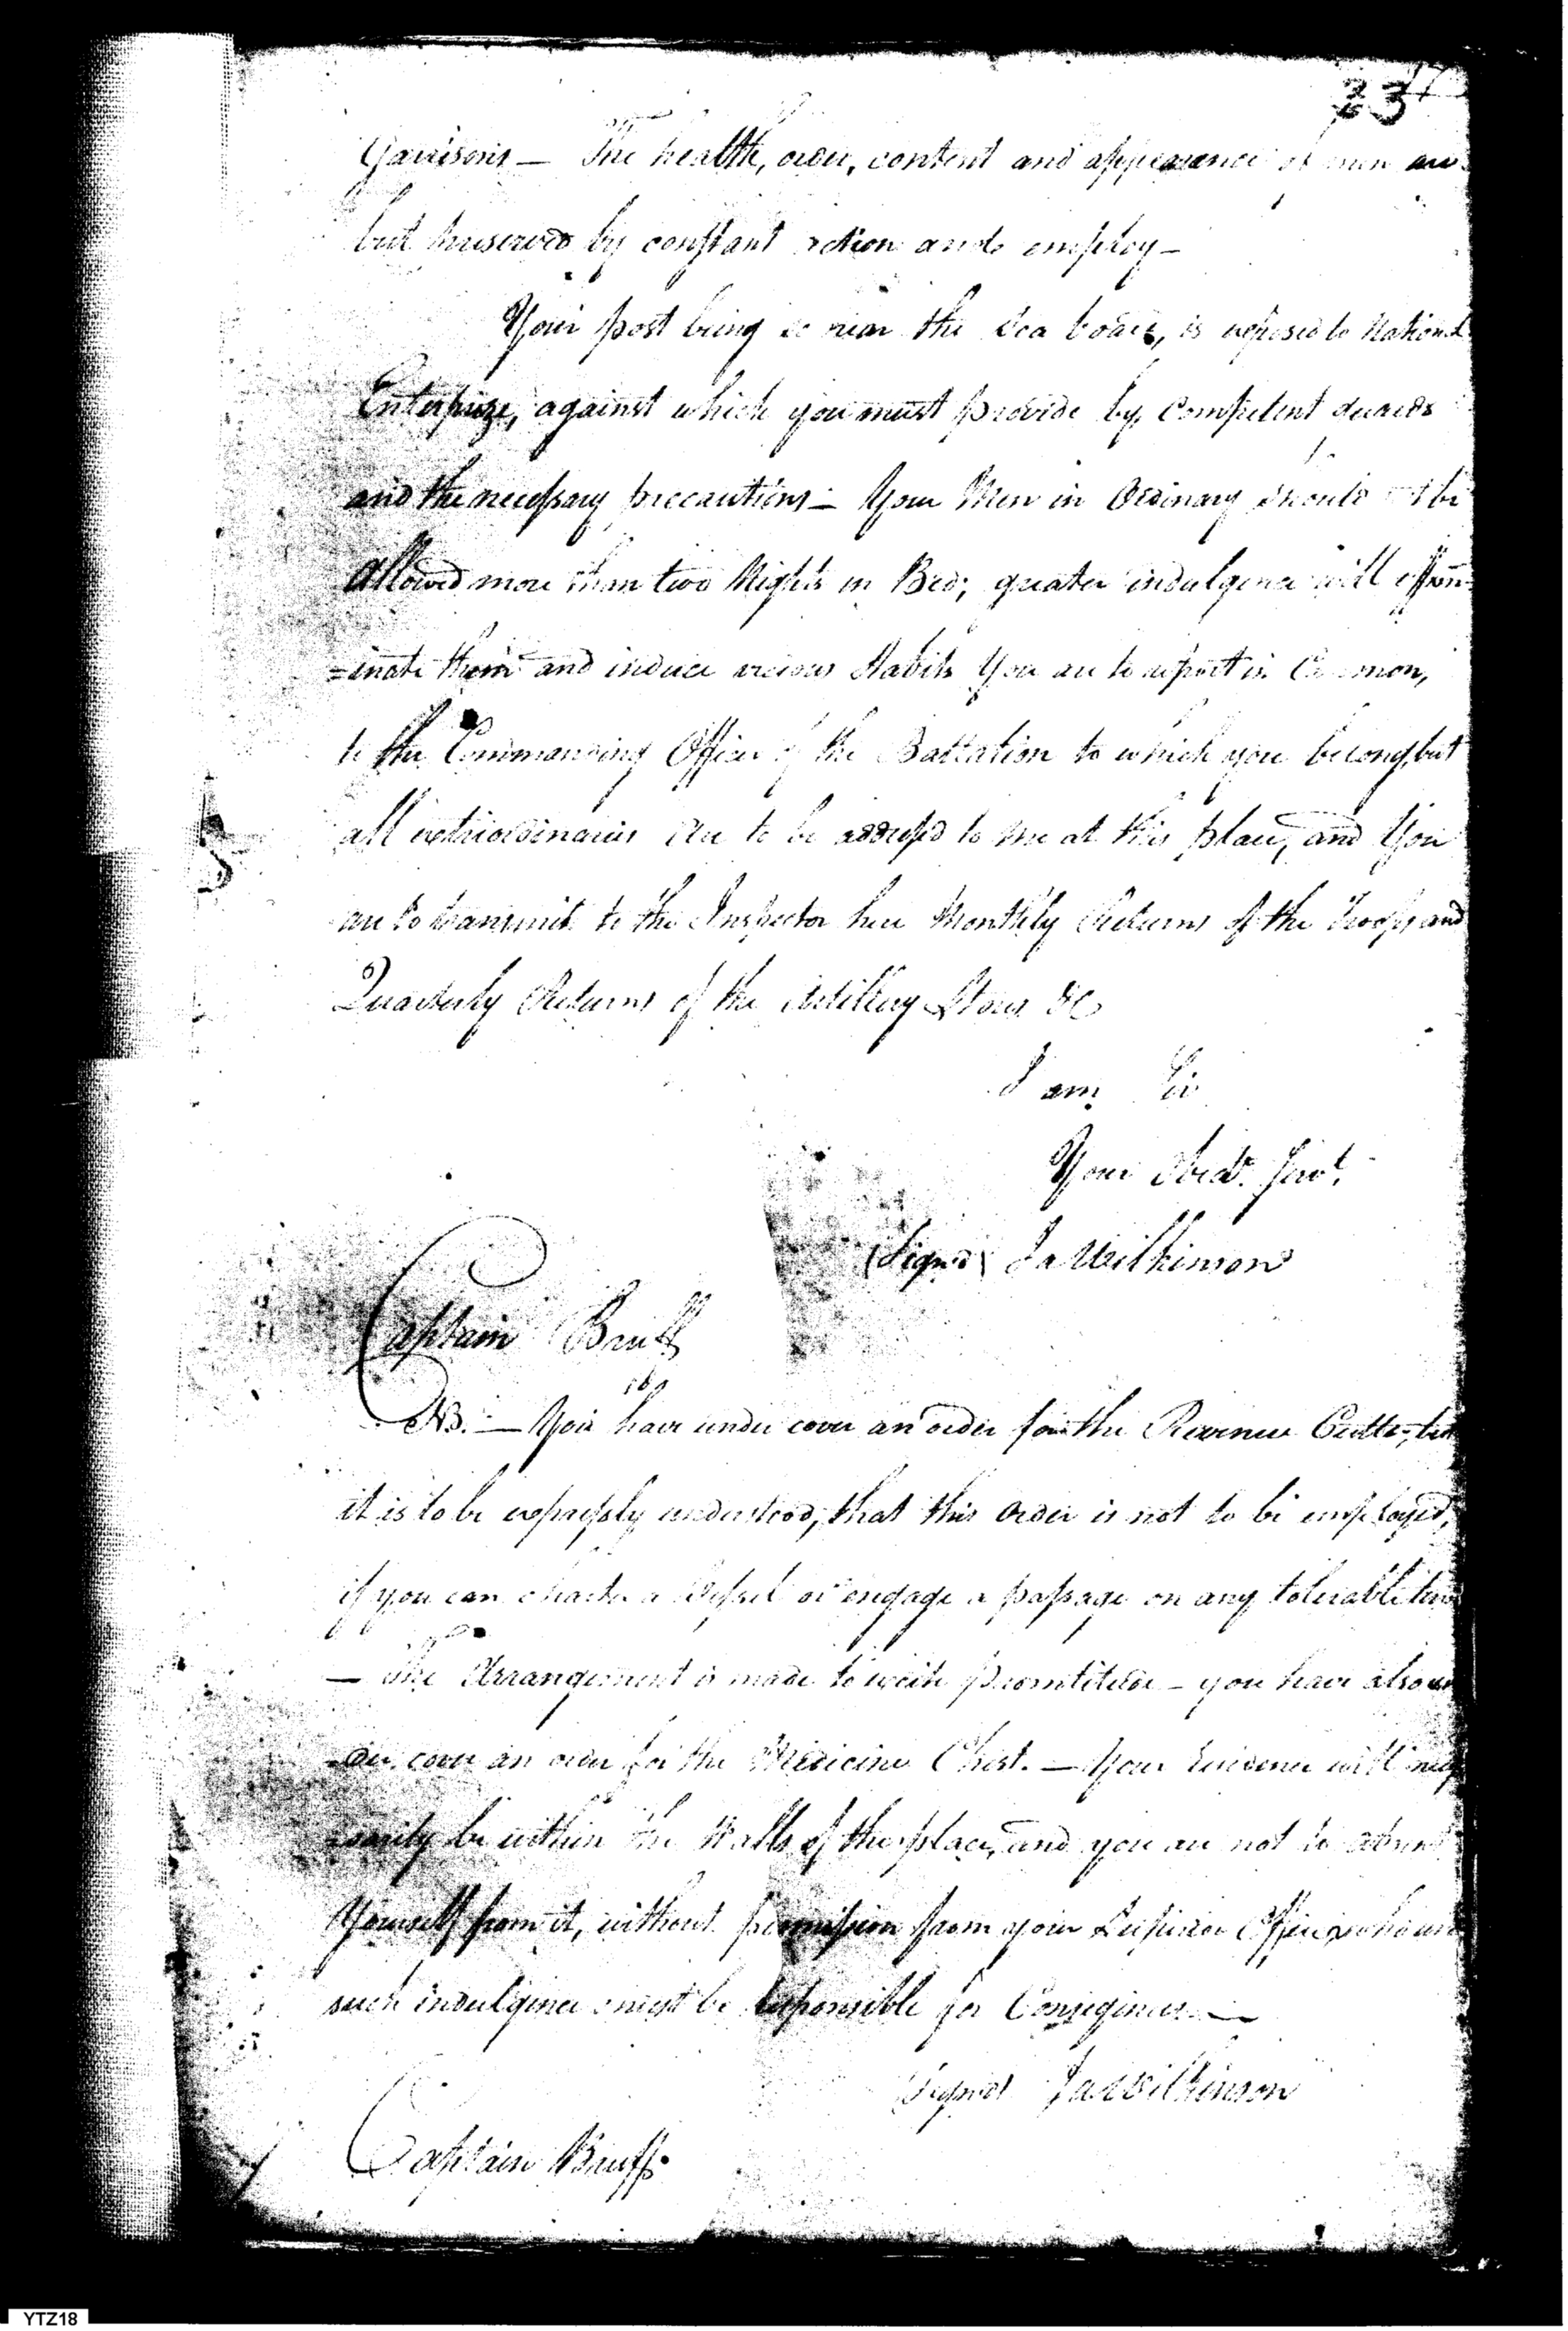 23
Garrisons — The health, order, content and appearance of men are
but preserved by constant action and employ —
Your post being so near the Sea board, is exposed to National
Enterprize, against which you must provide by, Competent Guards
and the necessary precautions — Your Men in Ordinary should not be
allowed more than two Nights in Bed; greater indulgence will effem-
=inate them and induce vicious Habits You are to report in Common,
to the Commanding Officer of the Battalion to which you belong, but
all extraordinaries are to be addressed to me at this place, and You
are to transmit to the Inspector here Monthly Returns of the Troops and
Quarterly Returns of the Artillery Stores &c
I am Sir
Your Obedt. Servt.
(Signed) Ja Wilkinson
Captain Bruff
NB. — You have under cover an order for the Revenue Cutter, but
it is to be expressly understood, that this Order is not to be employed,
if you can charter a Vessel or engage a passage on any tolerable terms
— The Arrangement is made to promtitude — you have also un
=der cover an order for the Medicine Chest. — Your residence will neces
=sarily be within the Walls of the place, and you are not to absent
Yourself from it, without permission from your Superior Officer, who
such indulgence must be responsible for Consequences. —
Signed Ja Wilkinson
Captain Bruff.
YTZ18